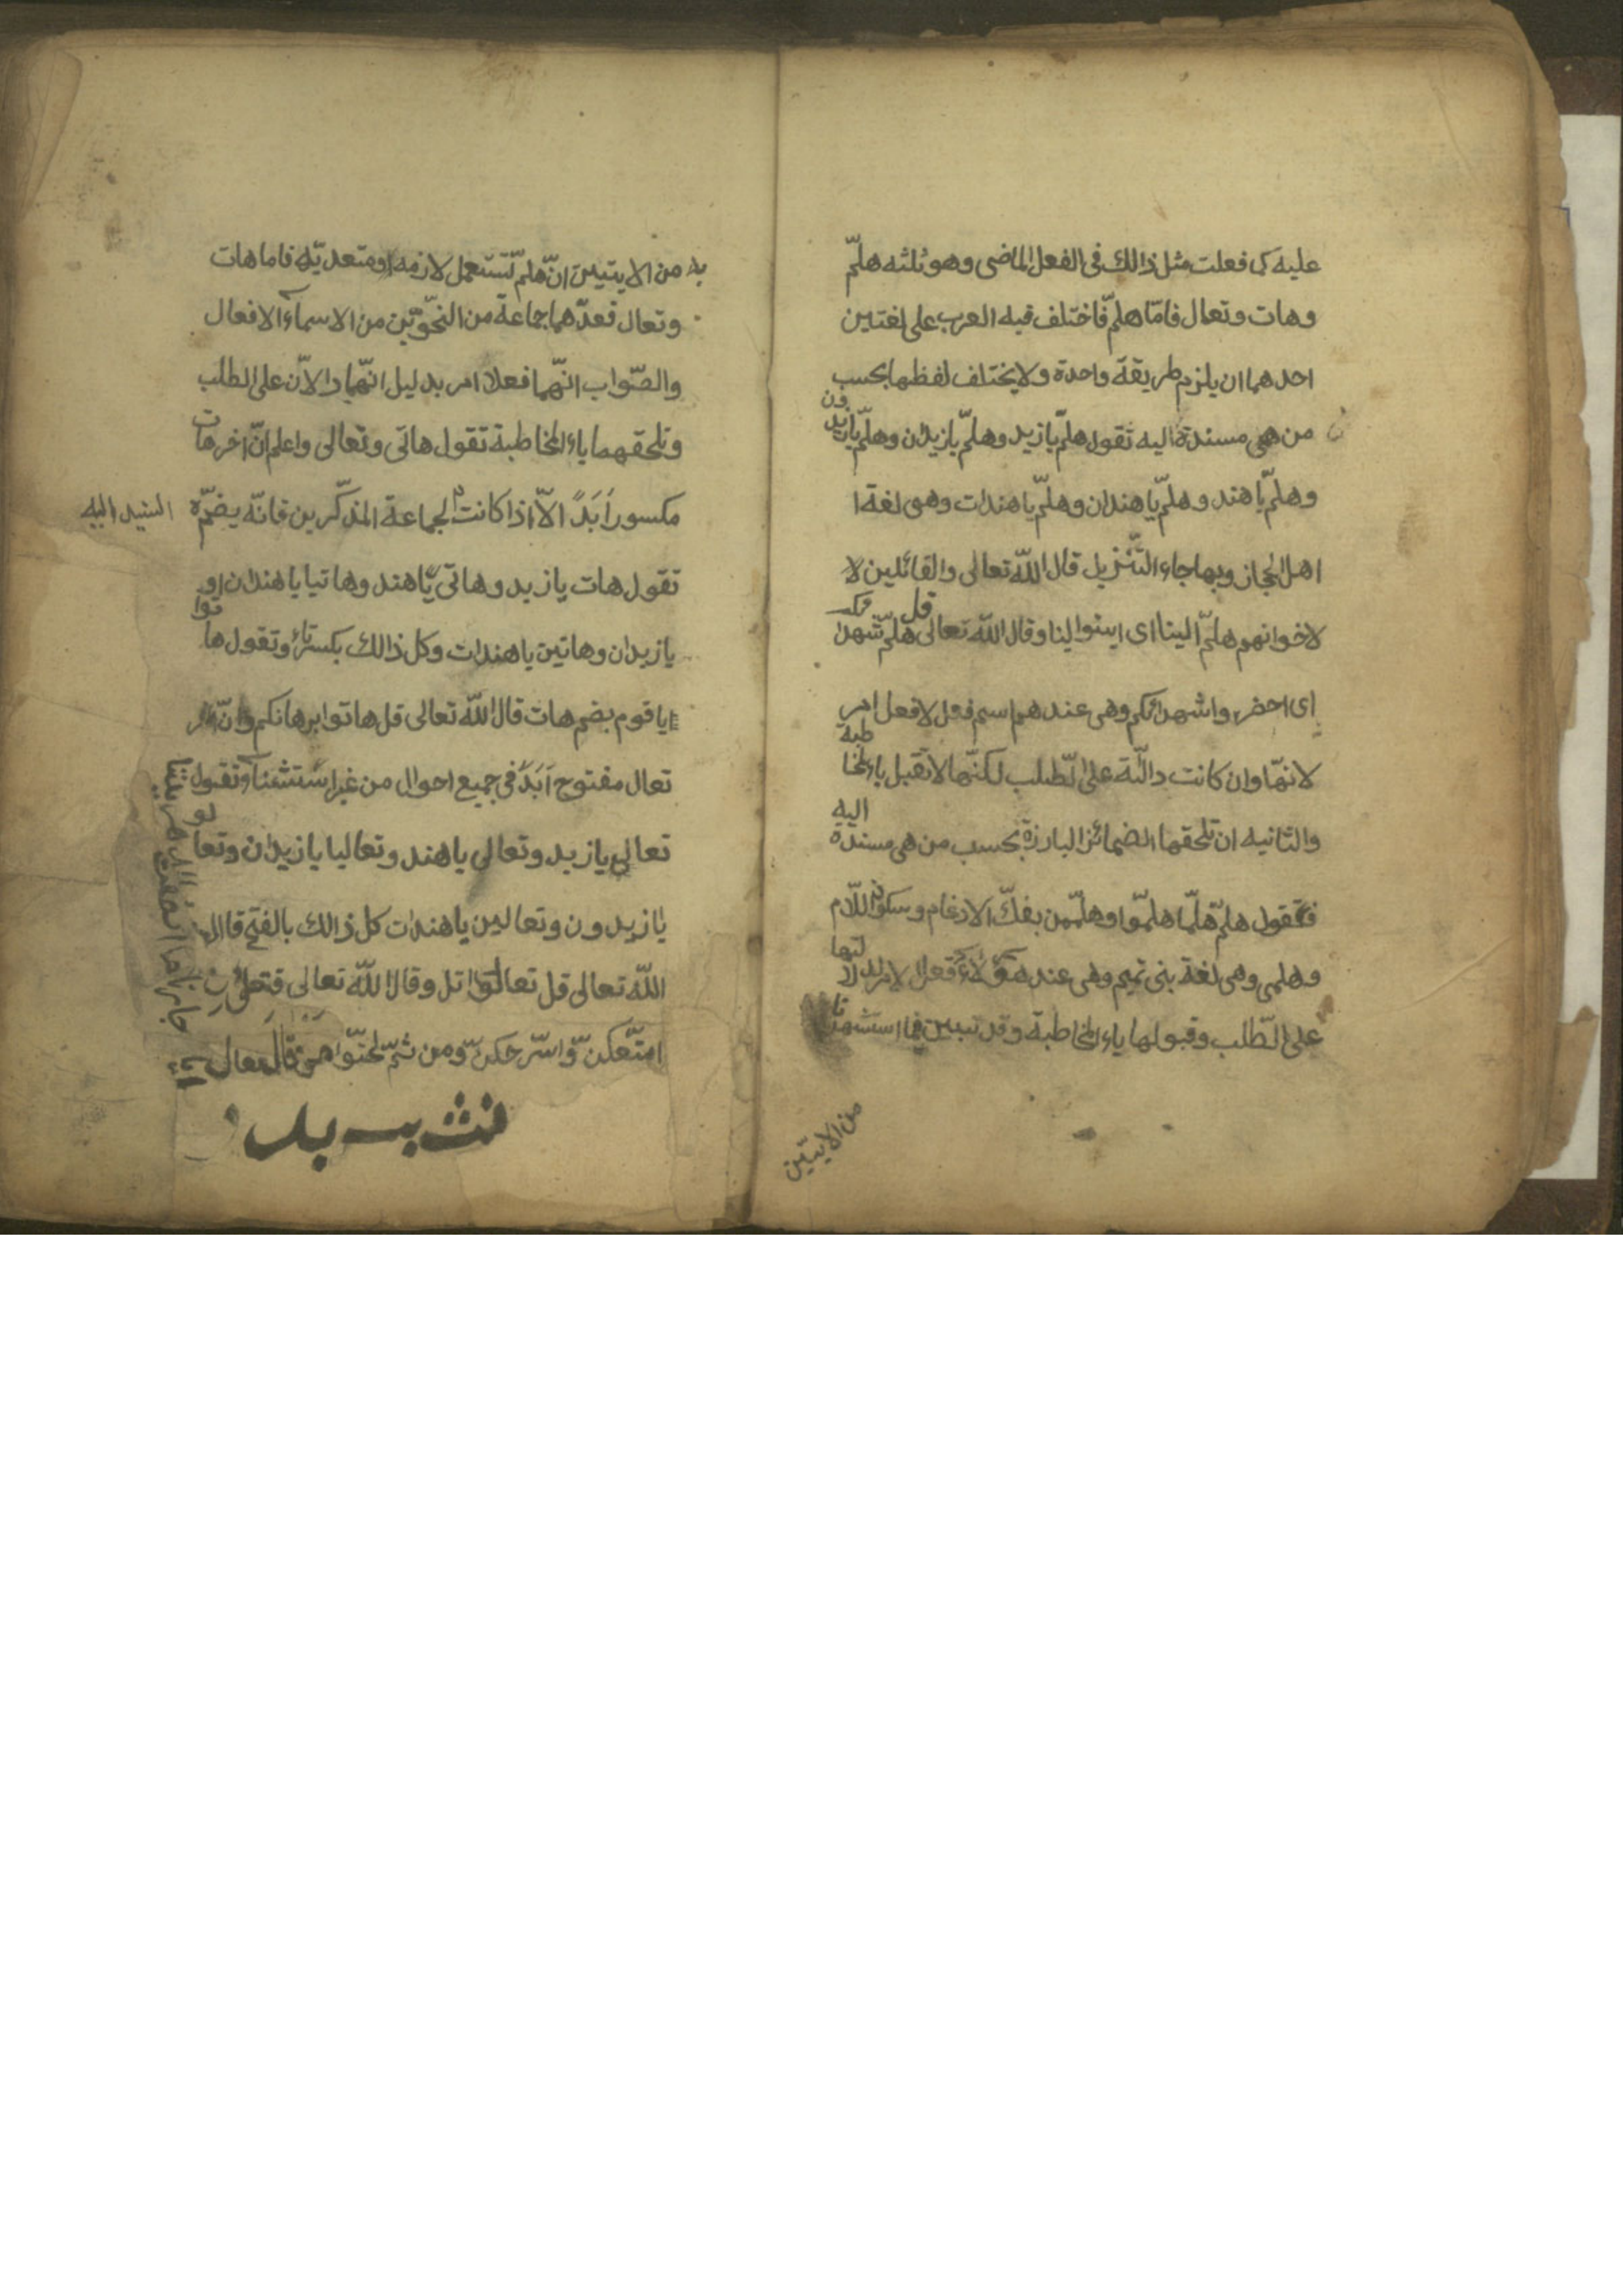 عليه كما فعلت مثل ذالك فى الفعل الماضى وهو ثلثه هلمّ
وهات وتعال فامّا هلمّ فاختلف فيه العرب على لغتين
احدهما ان يلزم طريقة واحدة ولا يختلف لفظها بحسب
من هى مسندة اليه تقول هلمّ يا زيد وهلمّ يا زيدان وهلمّ يا زيدون
وهلمّ يا هند وهلمّ يا هندان وهلمّ يا هندات وهى لغة ا
اهل الحجاز وبها جاء التّنزيل قال اللّه تعالى والقائلين لا
لاخوانهم هلمّ الينا اى ايتوا الينا وقال اللّه تعالى قل هلمّ شهداءكم
اى احضروا شهدائكم وهى عندهم اسم فعل لا فعل امر
لانهّا وان كانت دالّة على الطّلب لكنّها لا تقبل ياء المخاطبة
والثانيه ان تلحقها الضمائر البارزة بحسب من هى مسندة اليه
فتقول هلمّ هلمّا هلمّوا وهلممن بفكّ الادغام وسكون اللّام
وهلمى وهى لغة بنى تميم وهى عند هؤلاء فعل الامر لدلالتها
على الطّلب وقبولها ياء المخاطبة وقد تبين فما استشهدنا
من الايتين
به من الايتين انّ هلمّ تستعمل لازمه ومتعديّه فاما هات
وتعال فعدّهما جماعة من النحّويّين من الاسماء الافعال
والصّواب انهّما فعلا امر بدليل انهّما دالاّن على الطلب
وتلحقهما ياء المخاطبة تقول هاتى وتعالى واعلم انّ اخر هات
مكسور اَبَدً الاّ اذا كانت لجماعة المذكّرين فانّه يضمّه
السند اليه
تقول هات يا زيد وهاتى يا هند وهاتيا يا هندان او
يا زيدان وهاتين يا هندات وكل ذالك بكسر تاء وتقول هاتوا
يا قوم بضم هات قال اللّه تعالى قل هاتوا برهانكم وانّ اخر
تعال مفتوح اَبَدً فى جميع احوال من غير استثناء وتقول
تعالى يا زيد وتعالى يا هند وتعاليا يا زيدان وتعالو
يا زيدون وتعالين يا هندات كل ذالك بالفتح قال
اللّه تعالى قل تعالوا اتل وقال اللّه تعالى فتعالين
امتّعكنّ واسّرحكنّ ومن ثمّ لحنّوا من قال تعال